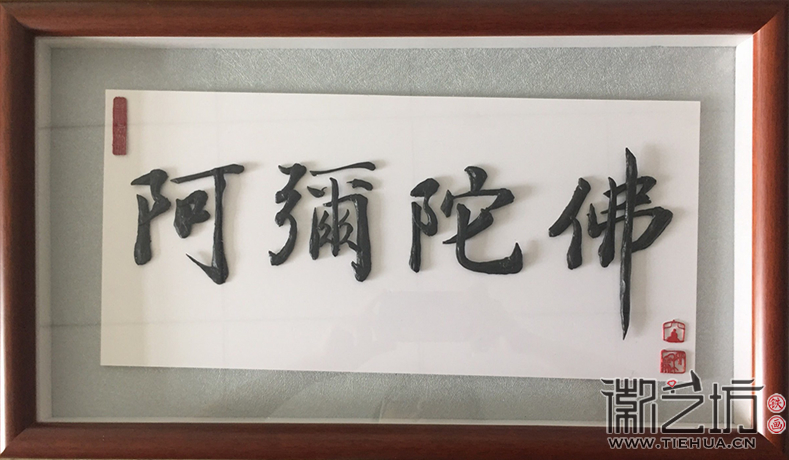 阿彌陀佛
徽艺坊
铁画
WWW.TIEHUA.CN